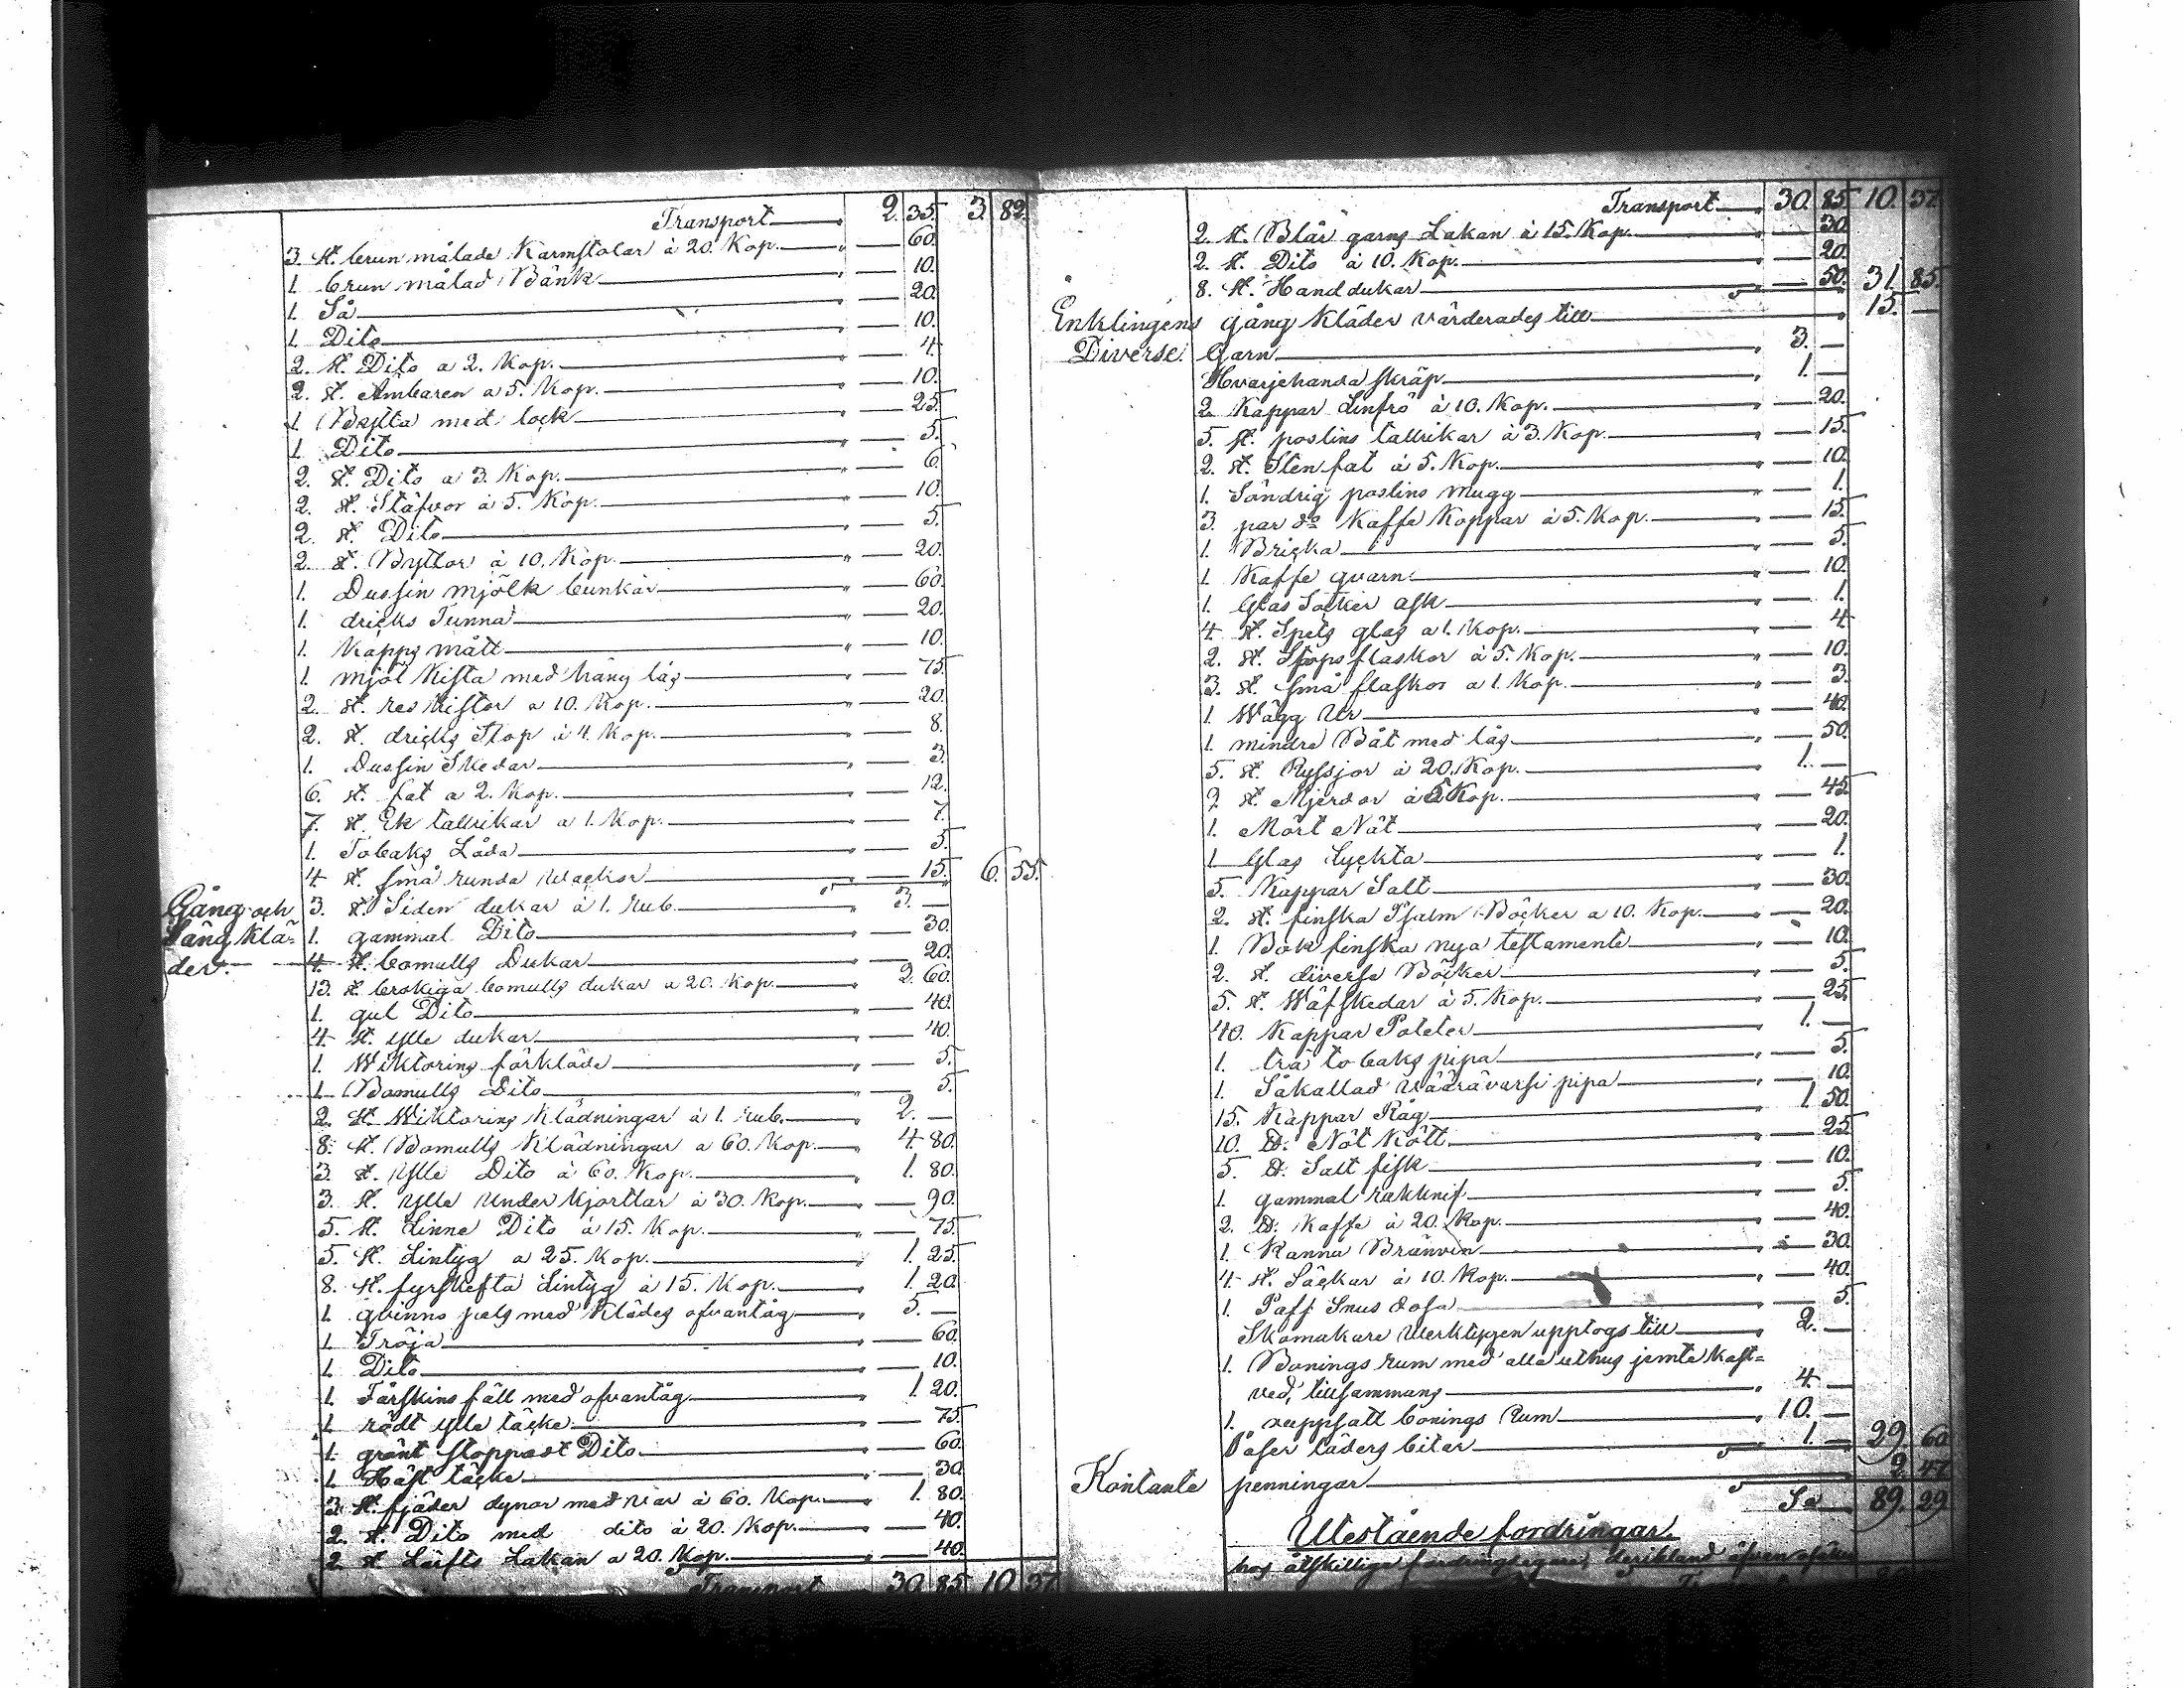 Transport 2. 35. 3. 82.
3. st. brun målade Karmstolar à 20. Kop. — 60.
1. brun målad Bänk — 10.
1. Så — 20.
1. Dito — 10.
2. st. Dito a 2. Kop. — 4.
2. st. Ämbaren a 5. Kop. — 10.
1. Bytta med lock — 25.
1. Dito — 5.
2. st. Dito a 3. Kop. — 6.
2. st. Stäfvor à 5. Kop. — 10.
2. st. Dito — 5.
2. st. Byttor à 10. Kop. — 20.
1. Dussin mjölk bunkar — 60.
1. dricks Tunna — 20.
1. Kapps mått — 10.
1. mjöl Kista med häng lås — 75.
2. st. res Kistor a 10. Kop. — 20.
2. st. dricks Stop à 4. Kop. — 8.
1. Dussin Skedar — 3.
6. st. fat a 2. Kop. — 12.
7. st. Ek tallrikar a 1. Kop. — 7.
1. Tobaks Låda — 5.
4. st. små runda Wackor — 15. 6. 55.
Gång och 3. st. Siden dukar à 1. Rub. 3. —
Säng Klä= 1. gammal Dito — 30.
der. 4. st. bomulls Dukar — 20.
13. st. brokiga bomulls dukar a 20. Kop. 2. 60.
1. gul Dito — 40.
4. st. ylle dukar — 40.
1. Wiktorins förkläde — 5.
1. Bomulls Dito — 5.
2. st. Wiktorins Klädningar à 1. Rub. 2. —
8. st. Bomulls Klädningar a 60. Kop. 4. 80.
3. st. ylle Dito à 60. Kop. 1. 80.
3. st. ylle under Kjortlar à 30. Kop. — 90.
5. st. Linne Dito à 15. Kop. — 75.
5. st. Lintyg a 25. Kop. 1. 25.
8. st. fyrskefta Lintyg à 15. Kop. 1. 20.
1. qvinns pels med Klädes ofvantåg 5. —
1. Tröja — 60.
1. Dito — 10.
1. Fårskins fäll med ofvantåg 1. 20.
1. rödt ylle täcke — 75.
1. grönt stoppadt Dito — 60.
1. Häst täcke — 30.
3. st. fjäder dynor med var à 60. Kop. 1. 80.
2. st. Dito med dito à 20. Kop. — 40.
2. st. Lärfts Lakan a 20. Kop. — 40.
Transport 30. 85. 10. 37.
Transport 30. 85. 10. 37.
2. st. Blår garns Lakan à 15. Kop. — 30.
2. st. Dito à 10. Kop. — 20.
8. st. Handdukar — 50. 31. 85.
Enklingens gång Kläder värderades till 15. —
Diverse. Garn 3. —
Hvarjehanda skräp 1. —
2. Kappar Linfrö à 10. Kop. — 20.
5. st. poslins tallrikar à 3. Kop. — 15.
2. st. Sten fat à 5. Kop. — 10.
1. Söndrig poslins mugg — 1.
3. par do Kaffe Koppar à 5. Kop. — 15.
1. Bricka — 5.
1. Kaffe qvarn — 10.
1. Glas Socker ask — 1.
4. st. Spets glas a 1. Kop. — 4.
2. st. Stops flaskor à 5. Kop. — 10.
3. st. små flaskor a 1. Kop. — 3.
1. Wägg Ur — 40.
1. mindre Båt med lås — 50.
5. st. Ryssjor à 20. Kop. 1. —
9. st. Mjerdor à 5 Kop. — 45.
1. Mört Nät — 20.
1. Glas Lyckta — 1.
5. Kappar Salt — 30.
2. st. finska Psalm Böcker a 10. Kop. — 20.
1. Bok finska nya testamente — 10.
2. st. diverse Böcker — 5.
5. st. Wäfskedar à 5. Kop. — 25.
40. Kappar Poteter 1. —
1. trä tobaks pipa — 5.
1. Såkallad väärävarsi pipa — 10.
15. Kappar Råg 1. 50.
10. ℔. Nöt Kött — 25.
5. ℔. Salt fisk — 10.
1. gammal rakknif — 5.
2. ℔. Kaffe à 20. Kop. — 40.
1. Kanna Bränvin — 30.
4. st. Säckar à 10. Kop. — 40.
1. Paff Snus dosa — 5.
Skomakare Werktygen upptogs till 2. —
1. Bonings rum med alla uthus jemte Kast=
ved, tillsammans 4. —
1. uppsatt bonings Rum 10. —
Påser läders bitar 1. — 29. 60.
Kontante penningar 2. 47.
Sa 89. 29.
Utestående fordringar.
hos åtskillige